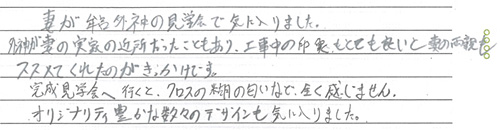 妻が年号外神の見学会で気に入りました。
外神が妻の実家の近所だったこともあり、工事中の印象もとても良いと妻の両親も
ススメてくれたのがきっかけです。
完成見学会へ行くと、クロスの糊の匂いなど、全く感じません。
オリジナリティ豊かな数々のデザインも気に入りました。